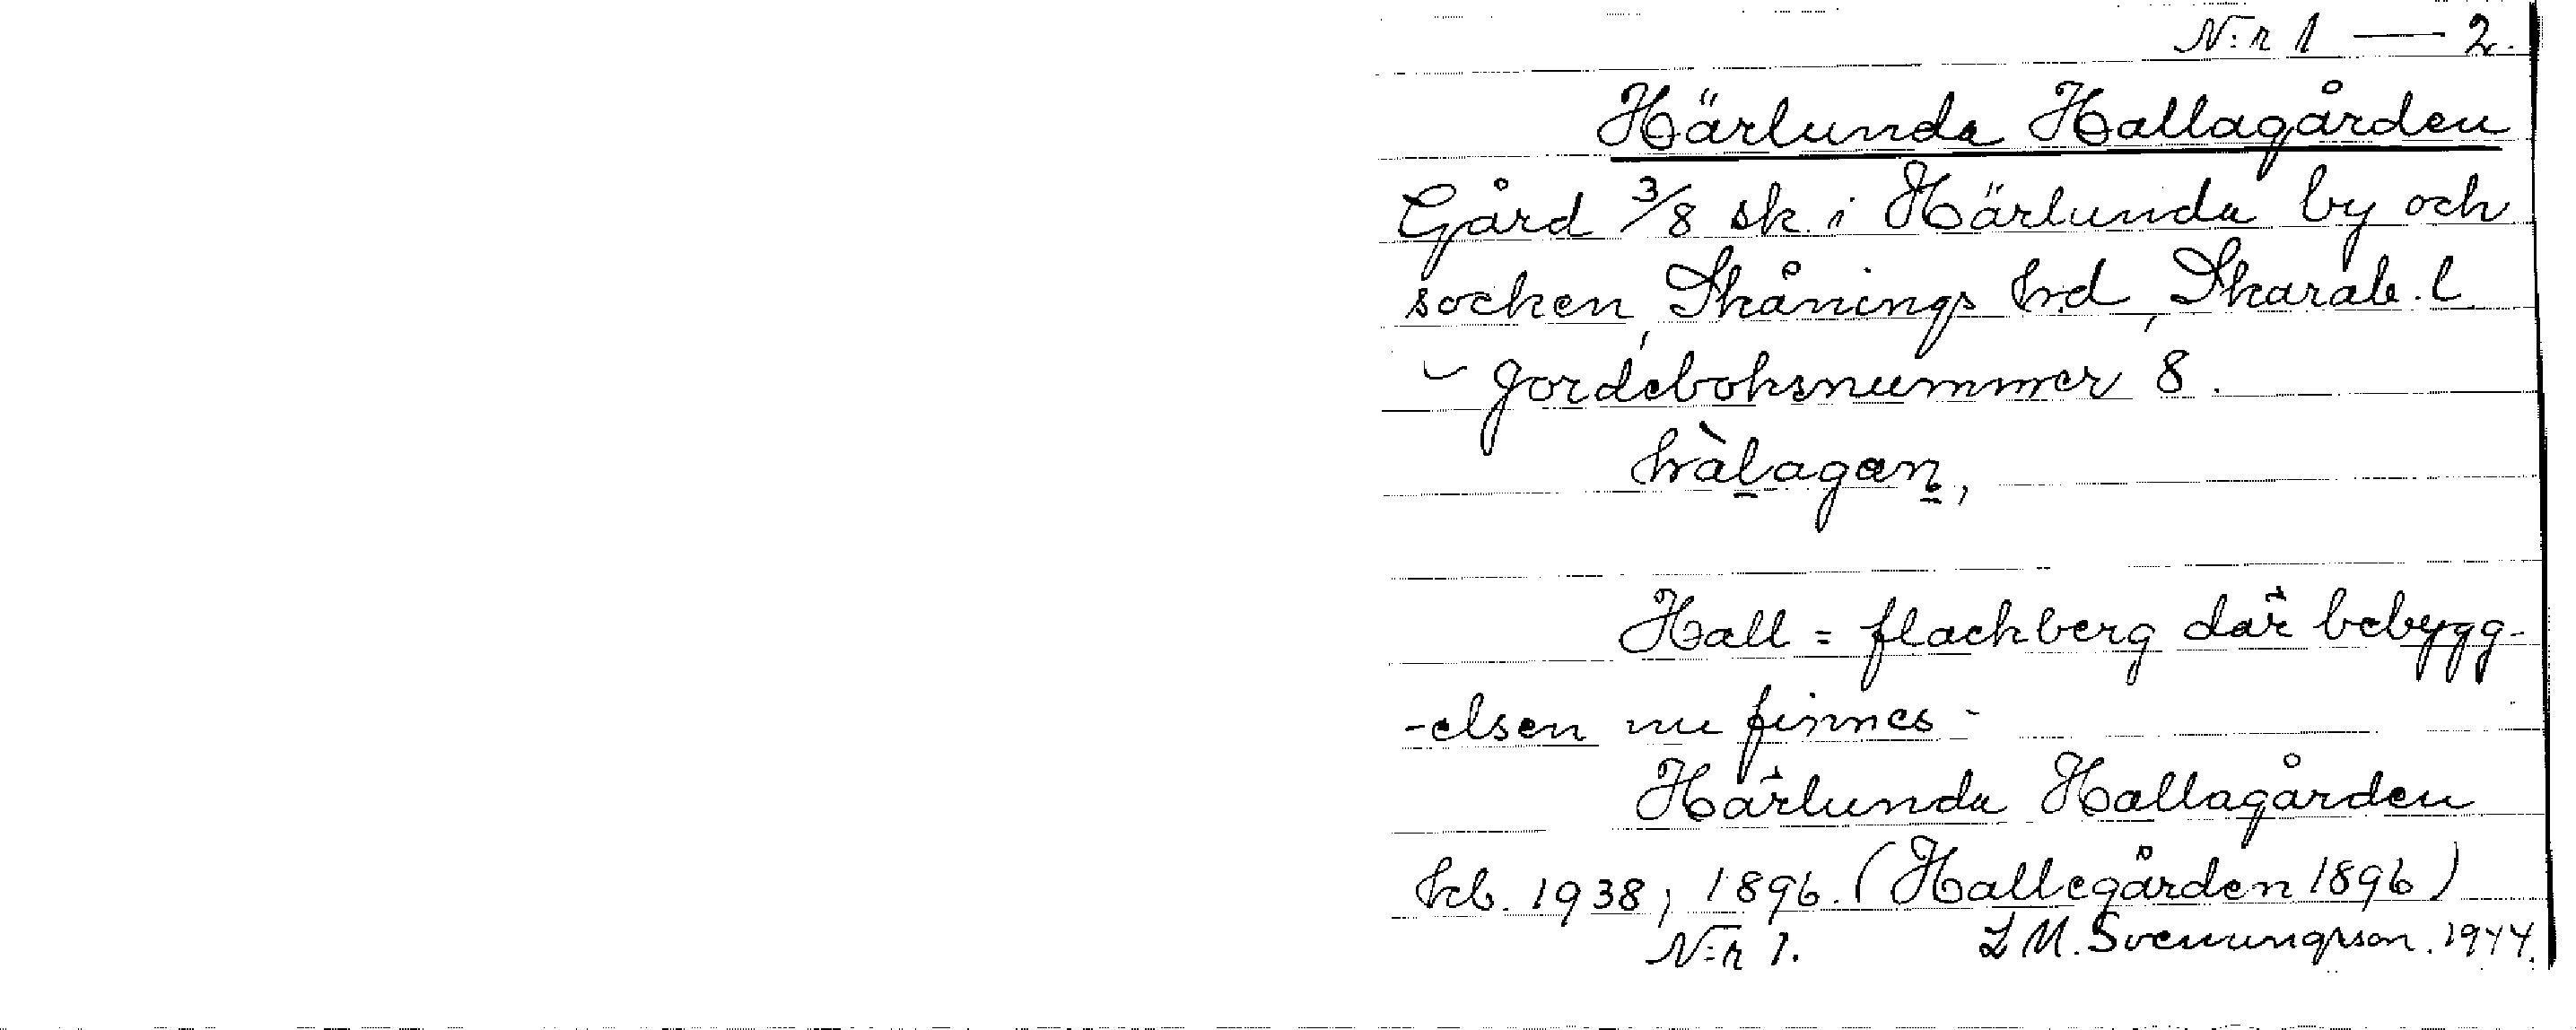 N:r 1 — 2.
Härlunda Hallagården
Gård 3/8 sk. i Härlunda by och
socken, Skånings hrd, Skarab. l
- Jordeboksnummer 8.
hàlagan,
Hall = flackberg där bebygg-
-elsen nu finnes -
Härlunda Hallagården
kb. 1938, 1896. (Hallegården 1896)
N:r 1. L M. Svenungsson. 1944.